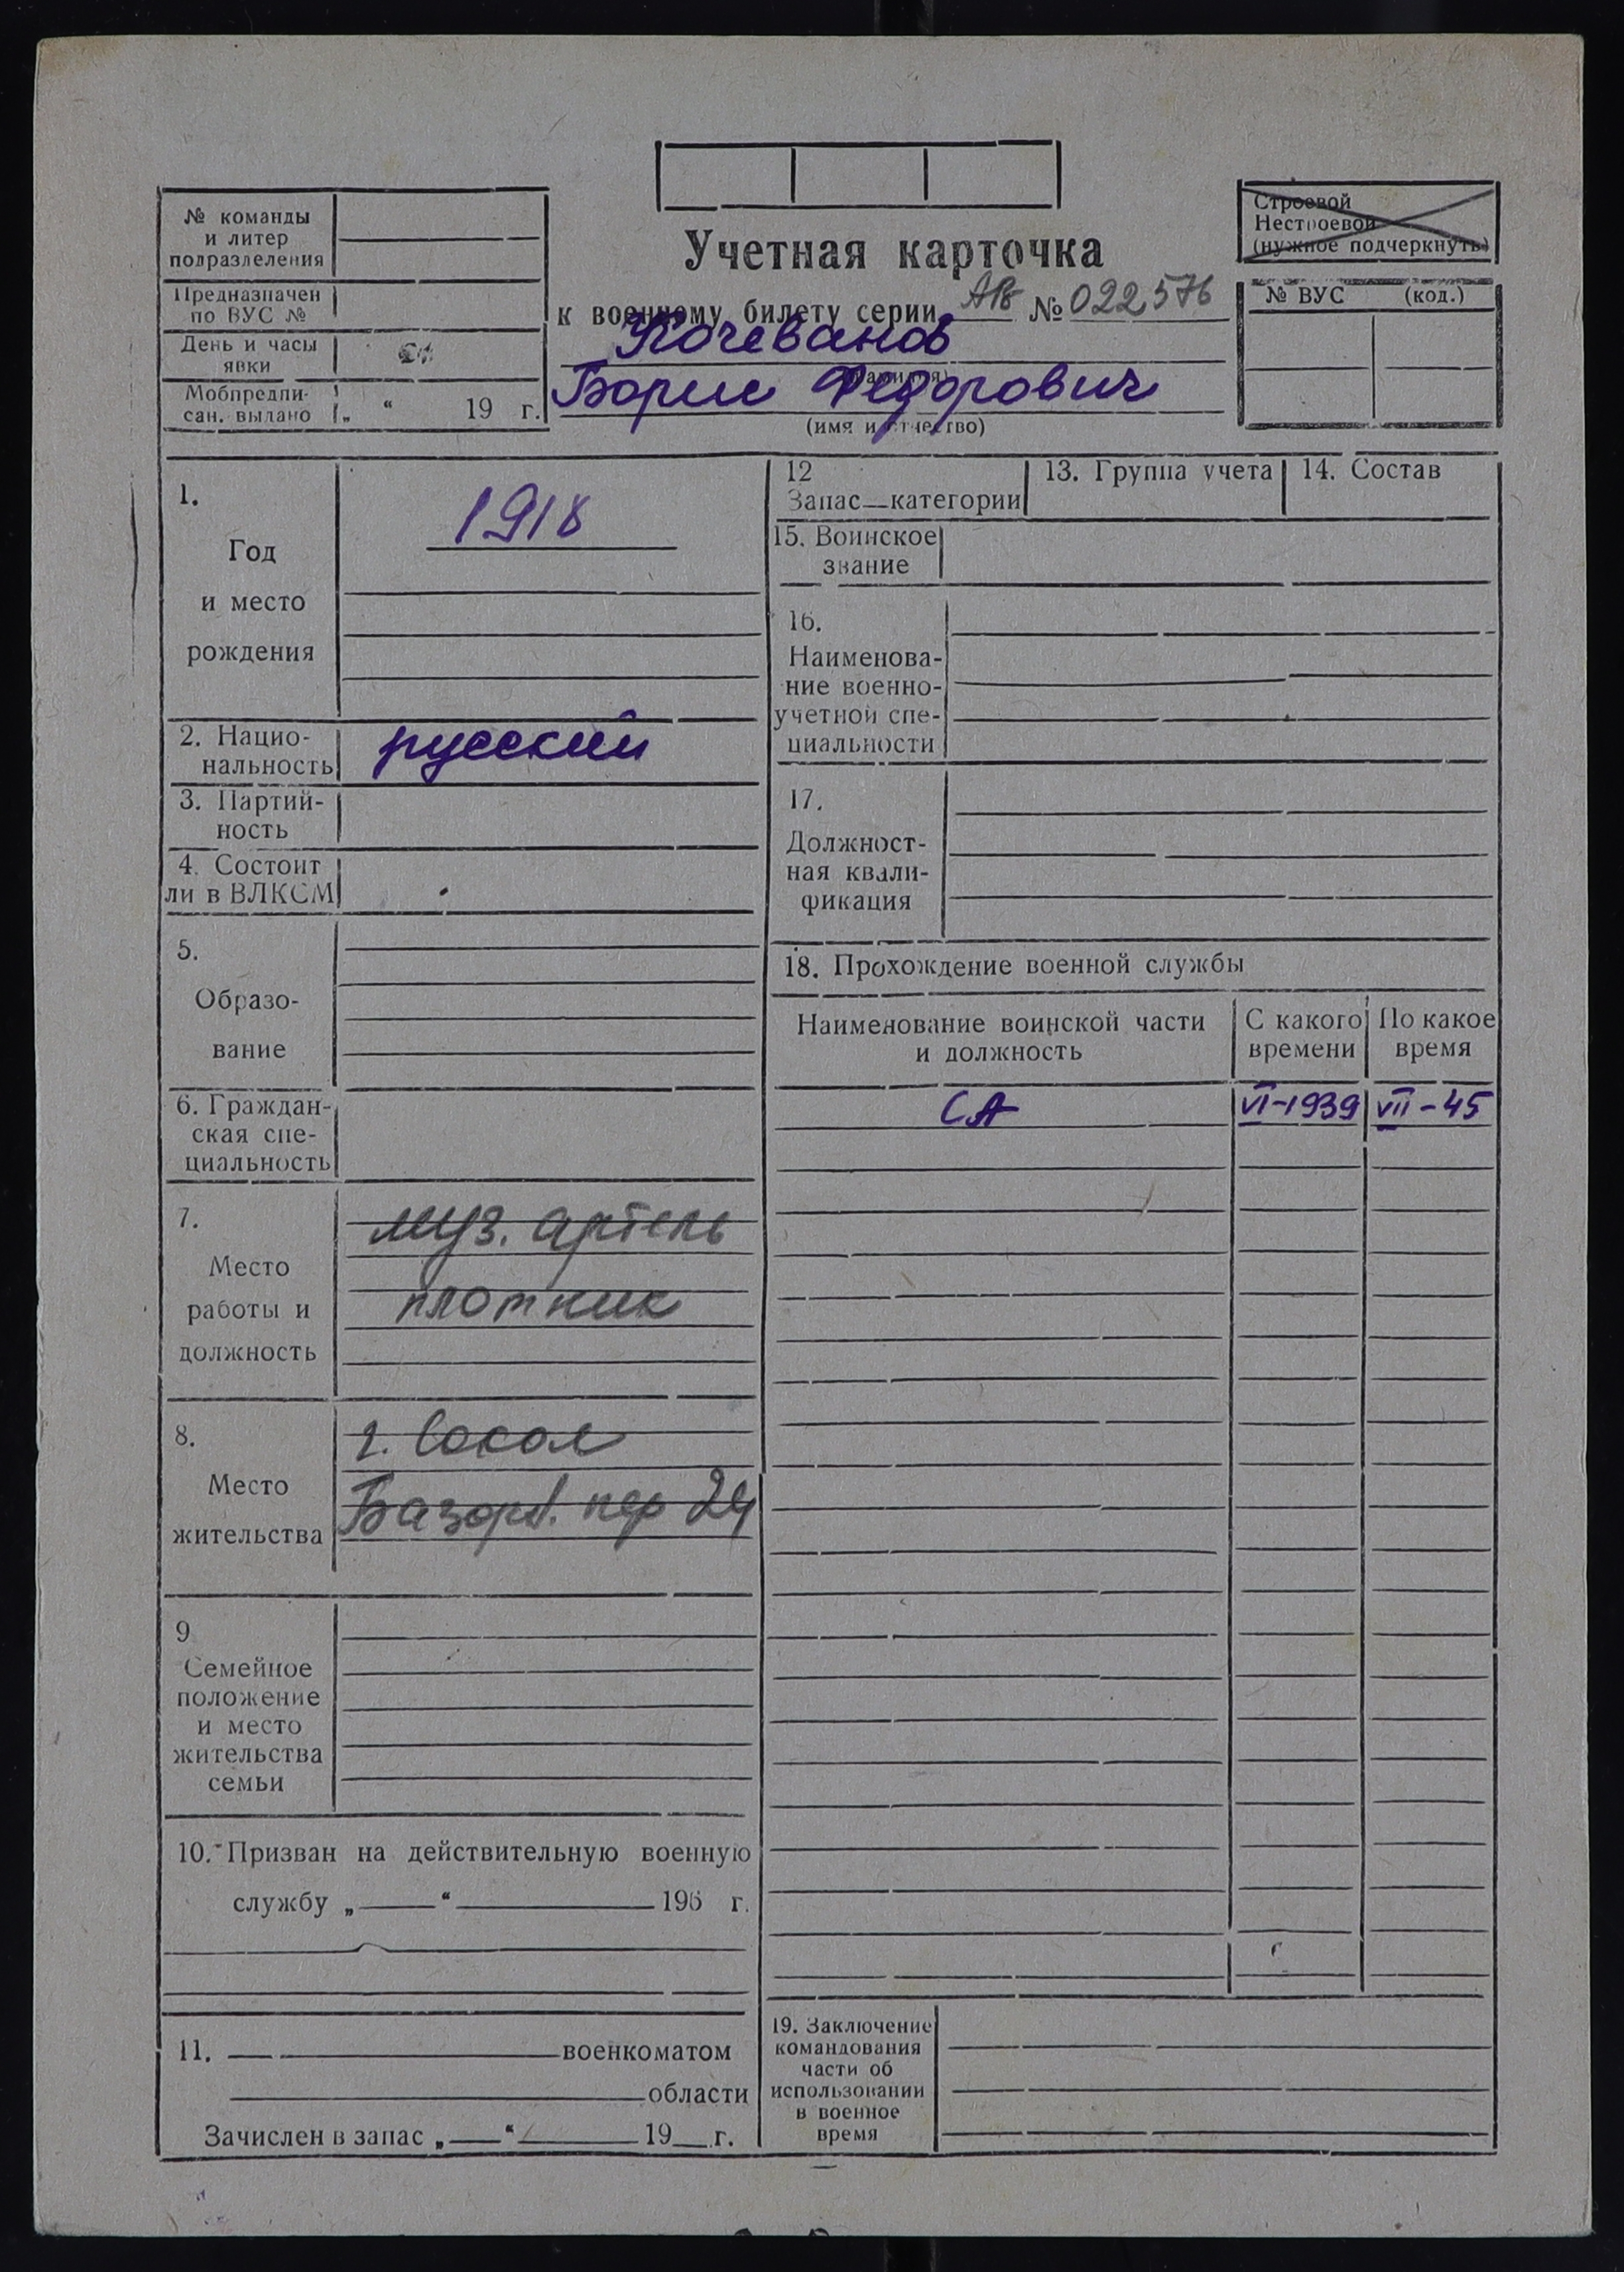 № команды
и литер
подразделения
Предназначен
по ВУС №
День и часы
явки
Мобпредпи-
сан. выдано „ “ 19 г.
Учетная карточка
к военному билету серии № 022576
Кочеванов
(фамилия)
Борис Федорович
(имя и отчество)
Строевой
Нестроевой
(нужное подчеркнуть)
№ ВУС (код.)
1.
Год
и место
рождения
1918
2. Нацио-
нальность
русский
3. Партий-
ность
4. Состоит
ли в ВЛКСМ
5.
Образо-
вание
6. Граждан-
ская спе-
циальность
7.
Место
работы и
должность
муз. артель
плотник
8.
Место
жительства
г. Сокол
Базарн. пер 24
9
Семейное
положение
и место
жительства
семьи
10. Призван на действительную военную
службу „ “ 196 г.
11. военкоматом
области
Зачислен в запас „ “ 19 г.
12
Запас—категории
13. Группа учета
14. Состав
15. Воинское
звание
16.
Наименова-
ние военно-
учетной спе-
циальности
17.
Должност-
ная квали-
фикация
18. Прохождение военной службы
Наименование воинской части
и должность
С какого
времени
По какое
время
СА VI-1939 VII-45
19. Заключение
командования
части об
использовании
в военное
время